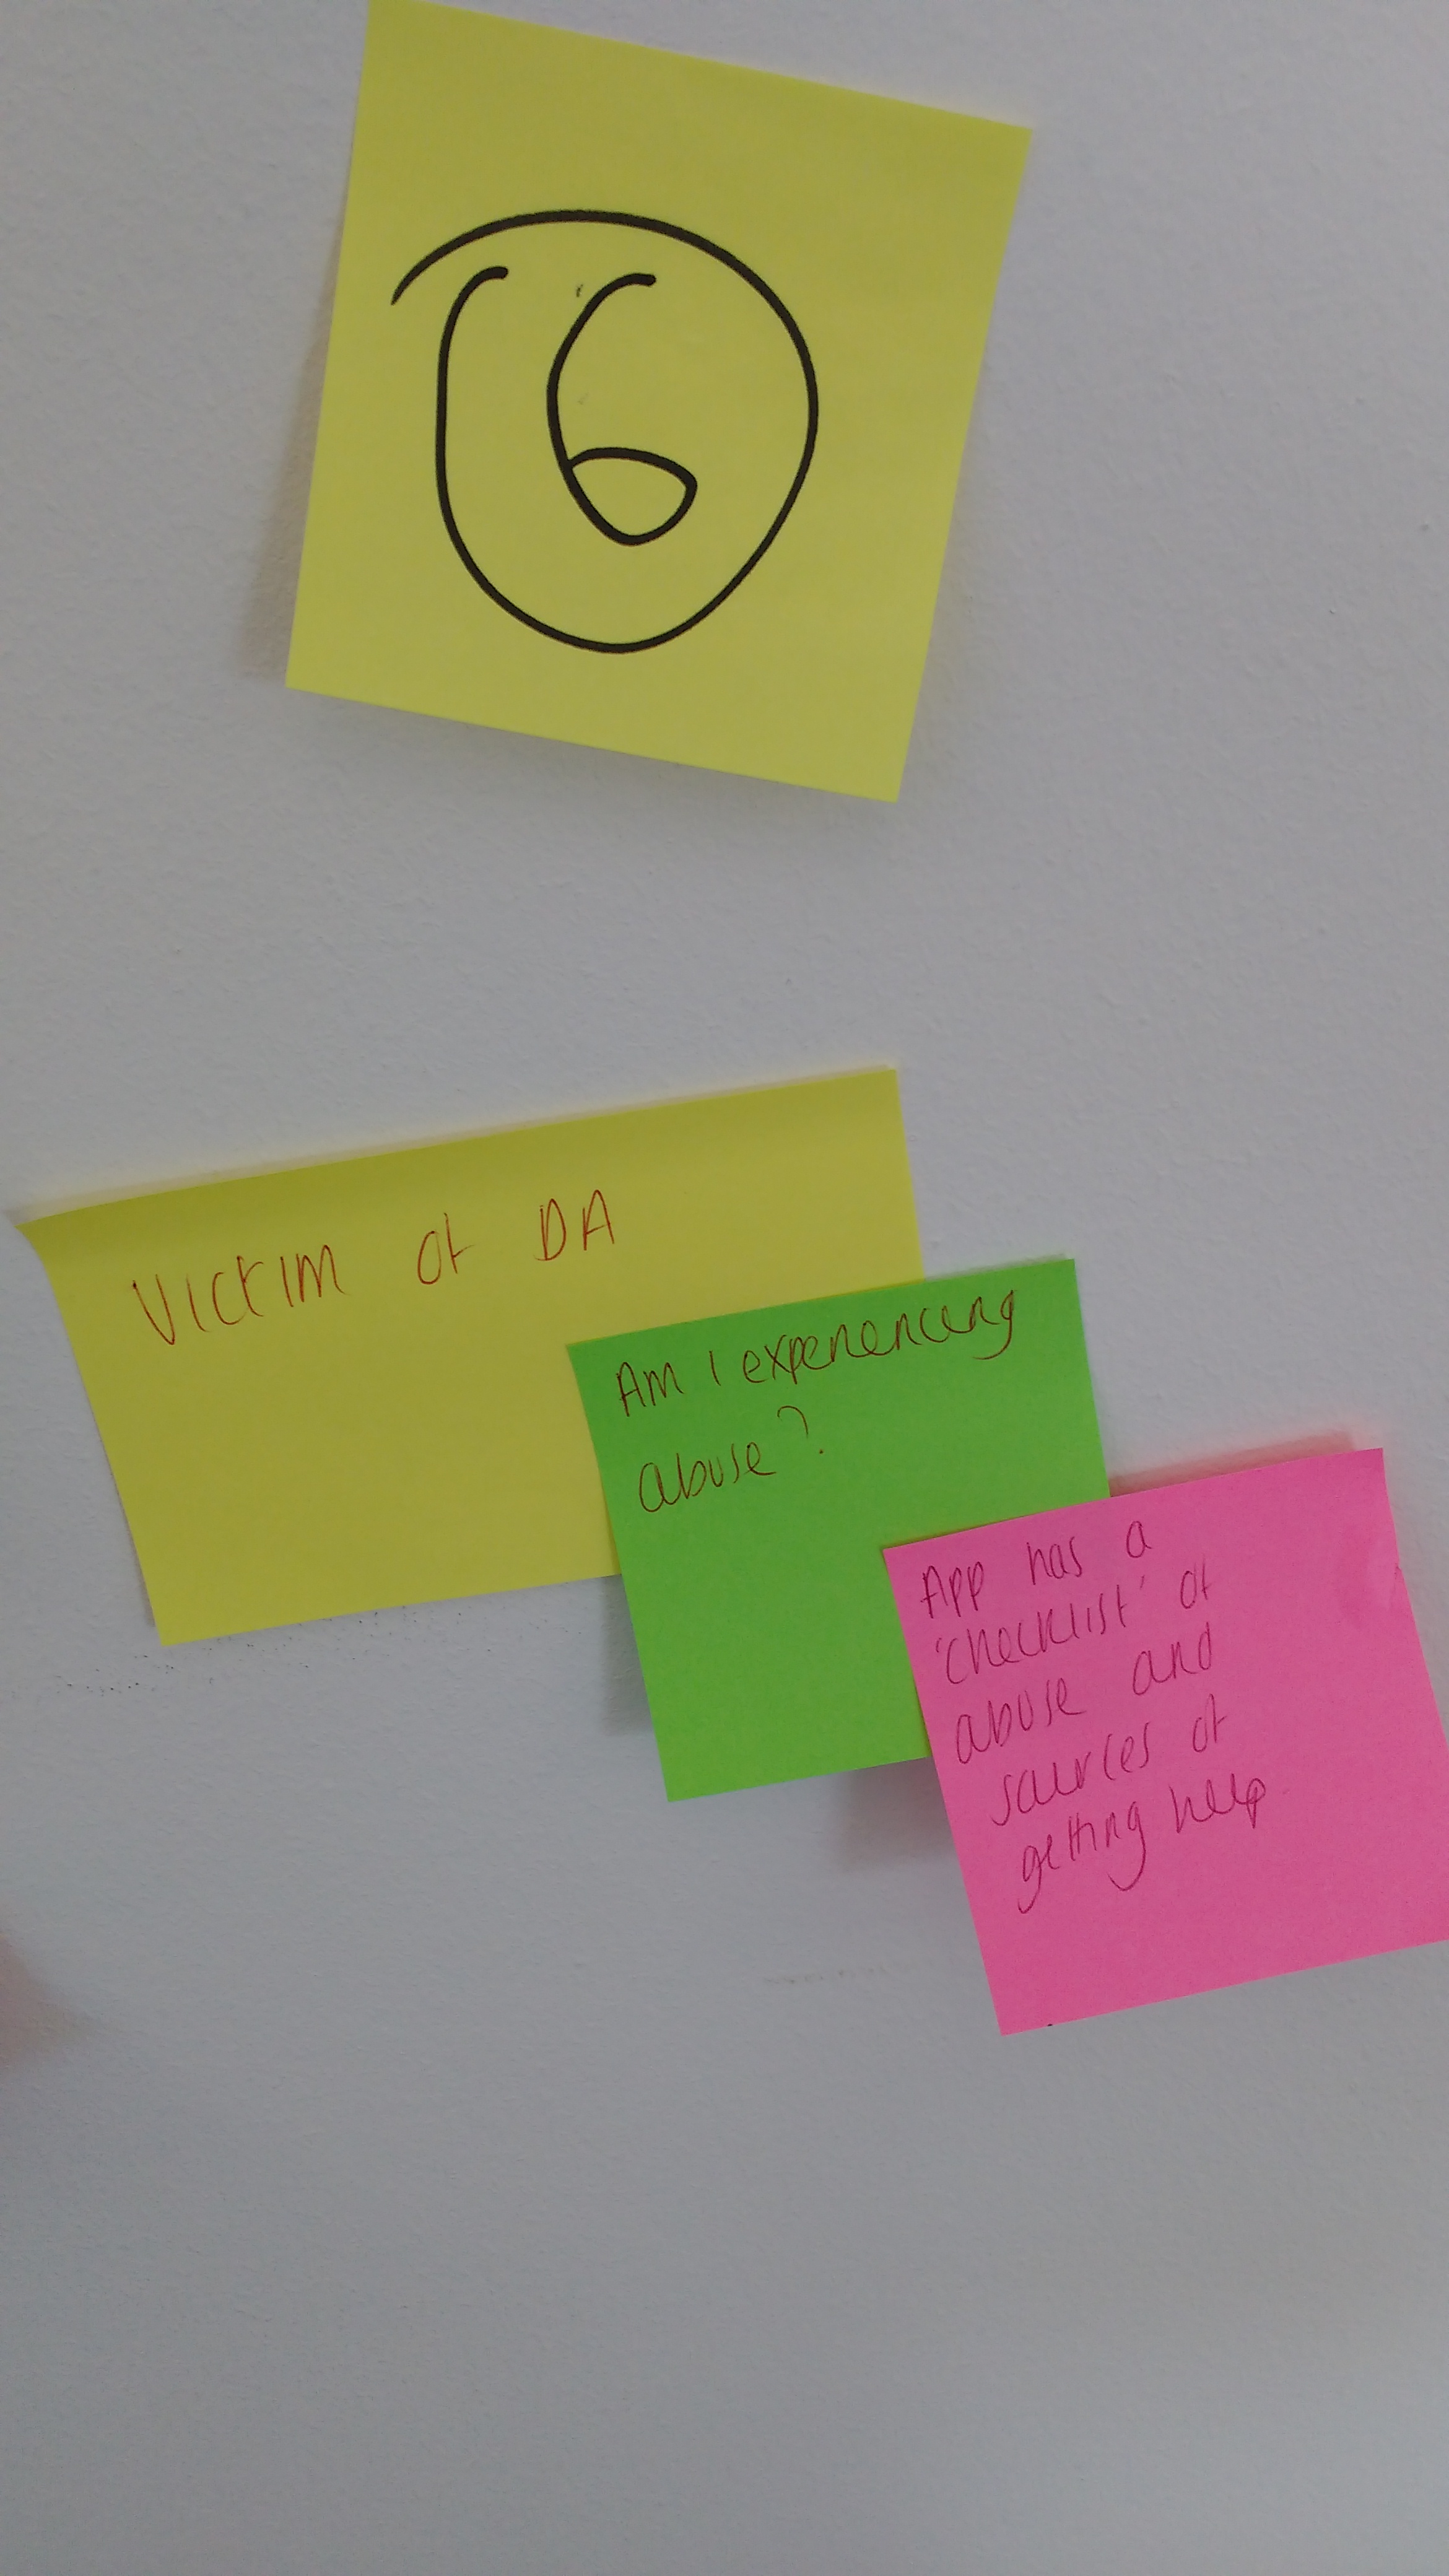 6
Victim of DA
Am I experiencing
abuse?
App has a
'checklist' of
abuse and
sources of
getting help